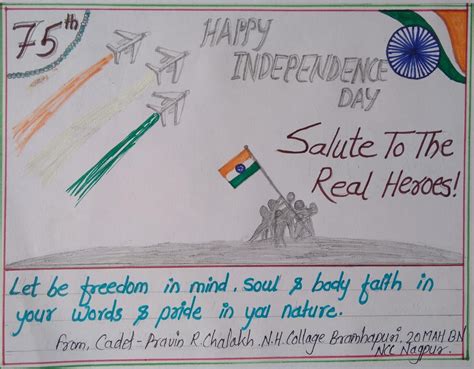 75th
HAPPY
INDEPENDENCE
DAY
Salute To The
Real Heroes!
Let be freedom in mind, soul & body faith in
your words & pride in you nature.
From, Cadet - Pravin R. Chalakh, N.H. Collage Bramhapuri, 20 MAH BN
NCC Nagpur.